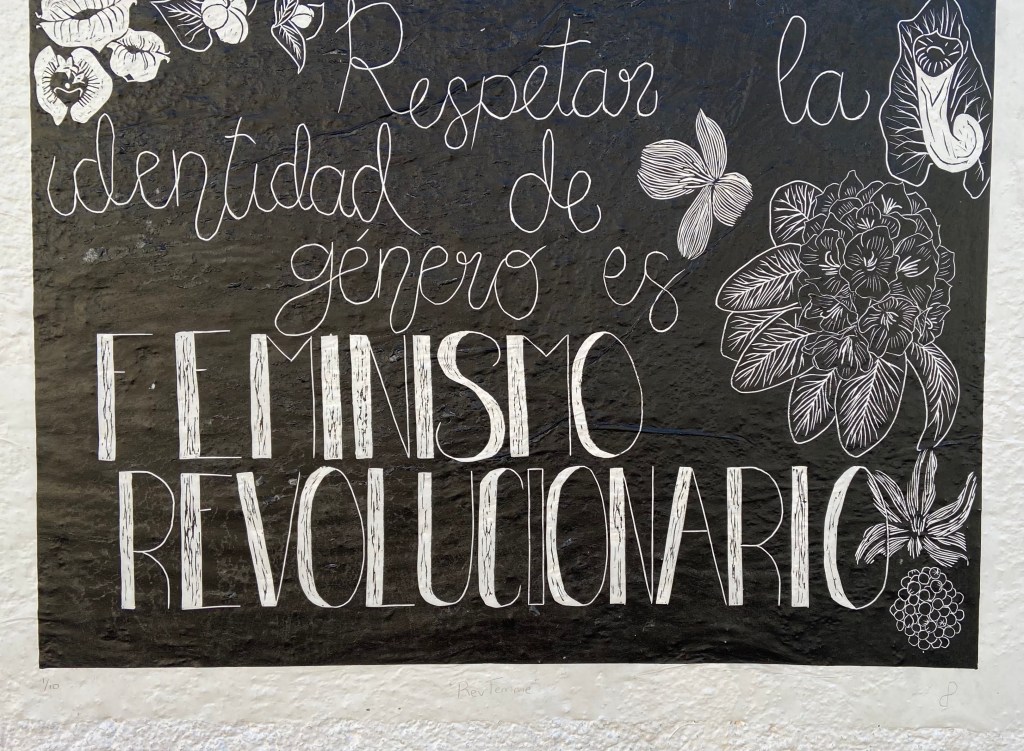 Respetar la
identidad de
género es
FEMINISMO
REVOLUCIONARIO
1/10 "RevFemme"